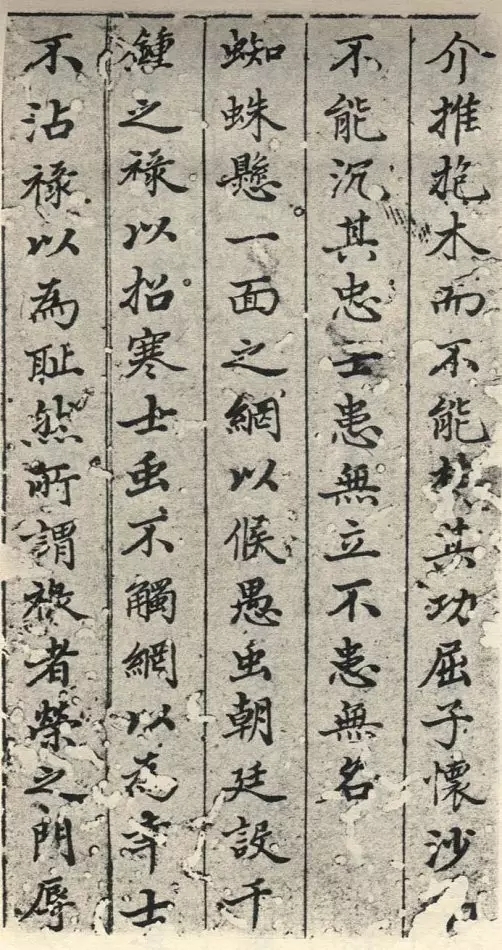 介推抱木而不能其功屈子懷沙
不能沉其忠士患無立不患無名
蜘蛛懸一面之網以候愚虫朝廷設千
鍾之祿以招寒士虫不觸網以為幸士
不沾祿以為耻然所謂祿者榮之門辱